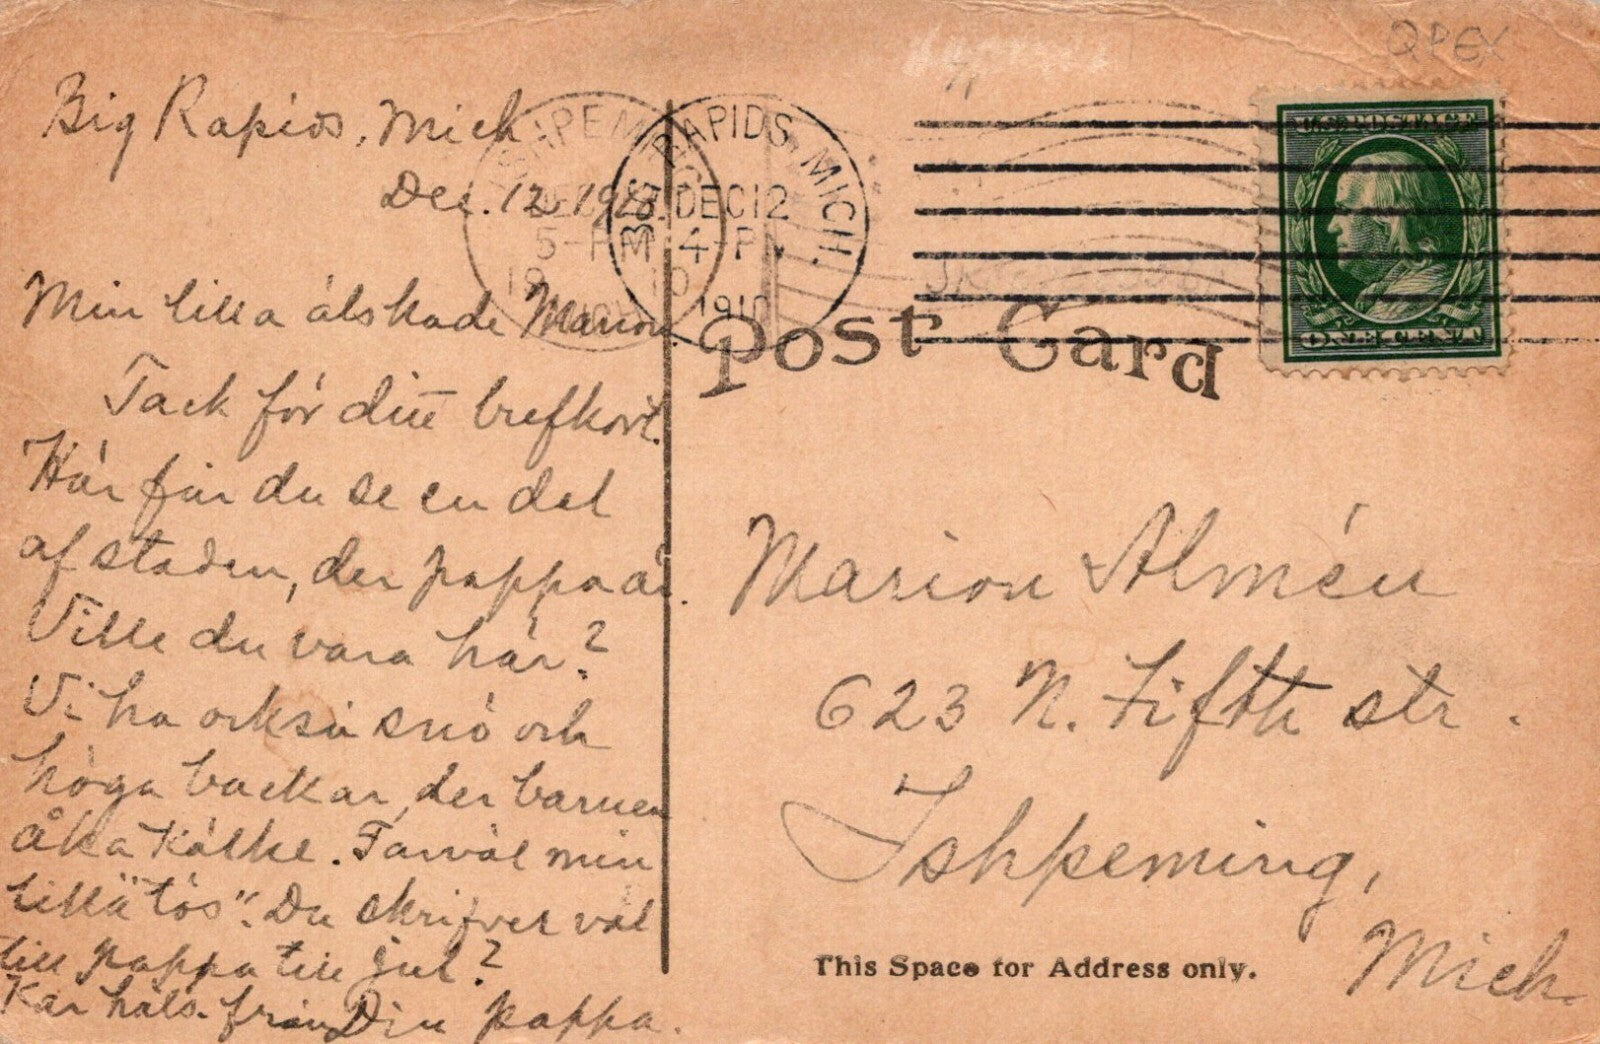 Big Rapids, Mich
Dec. 12 1910.
Min lilla älskade Marion.
Tack för ditt brefkort.
Här får du se en del
af staden, der pappa är.
Ville du vara här?
Vi ha också snö och
höga backar, der barnen
åka kälke. Farväl min
lilla "tös". Du skrifver väl
till pappa till jul?
Kär häls. från Din pappa.
ISHPEMING
5-PM
1910
MICH
RAPIDS, MICH.
DEC 12
4-PM
1910
U.S. POSTAGE
ONE CENT
Post Card
Marion Almén
623 N. Fifth str.
Ishpeming,
Mich.
This Space for Address only.